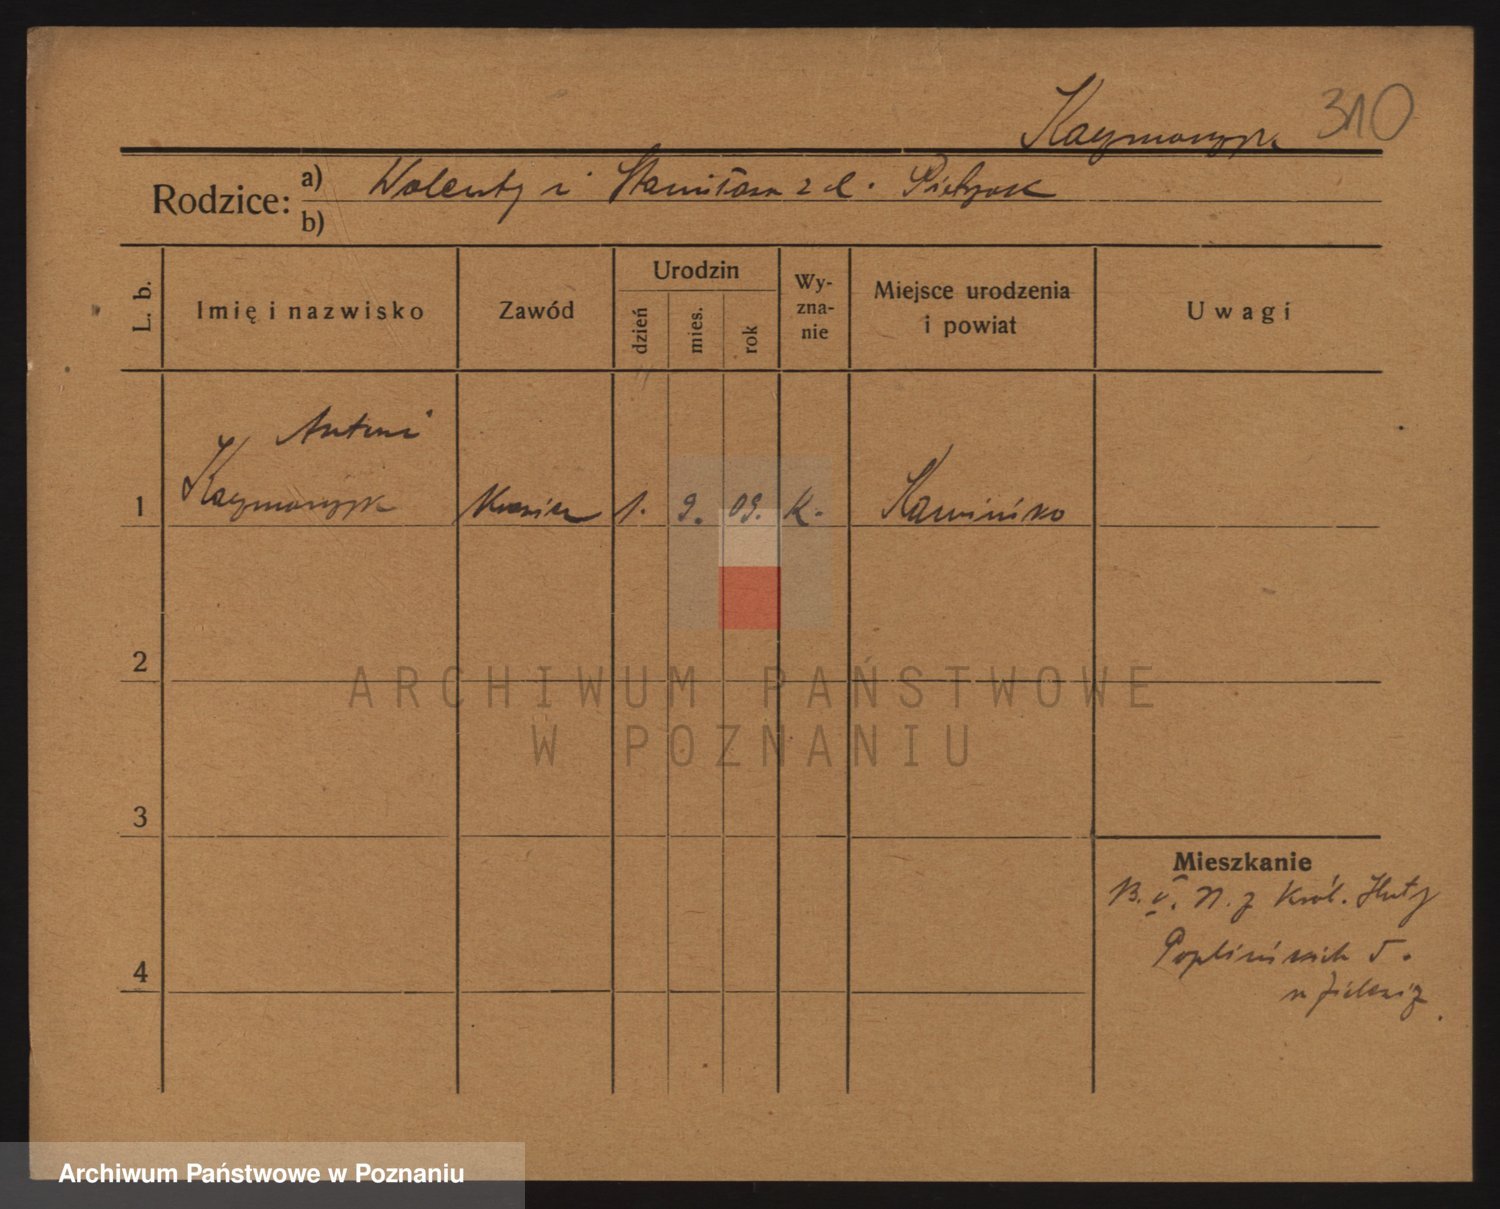 Kaczmarczyk 310
Rodzice: a) Walenty i Stanisława z d. Pietrzak
b)
L. b. Imię i nazwisko Zawód Urodzin dzień mies. rok Wyznanie Miejsce urodzenia i powiat Uwagi
Antoni
1 Kaczmarczyk 1. 9. 09. K. Kamińsko
2
ARCHIWUM PAŃSTWOWE
W POZNANIU
3
Mieszkanie
B. V. N. z Król. Huty
4 Poplińskich 5.
Archiwum Państwowe w Poznaniu